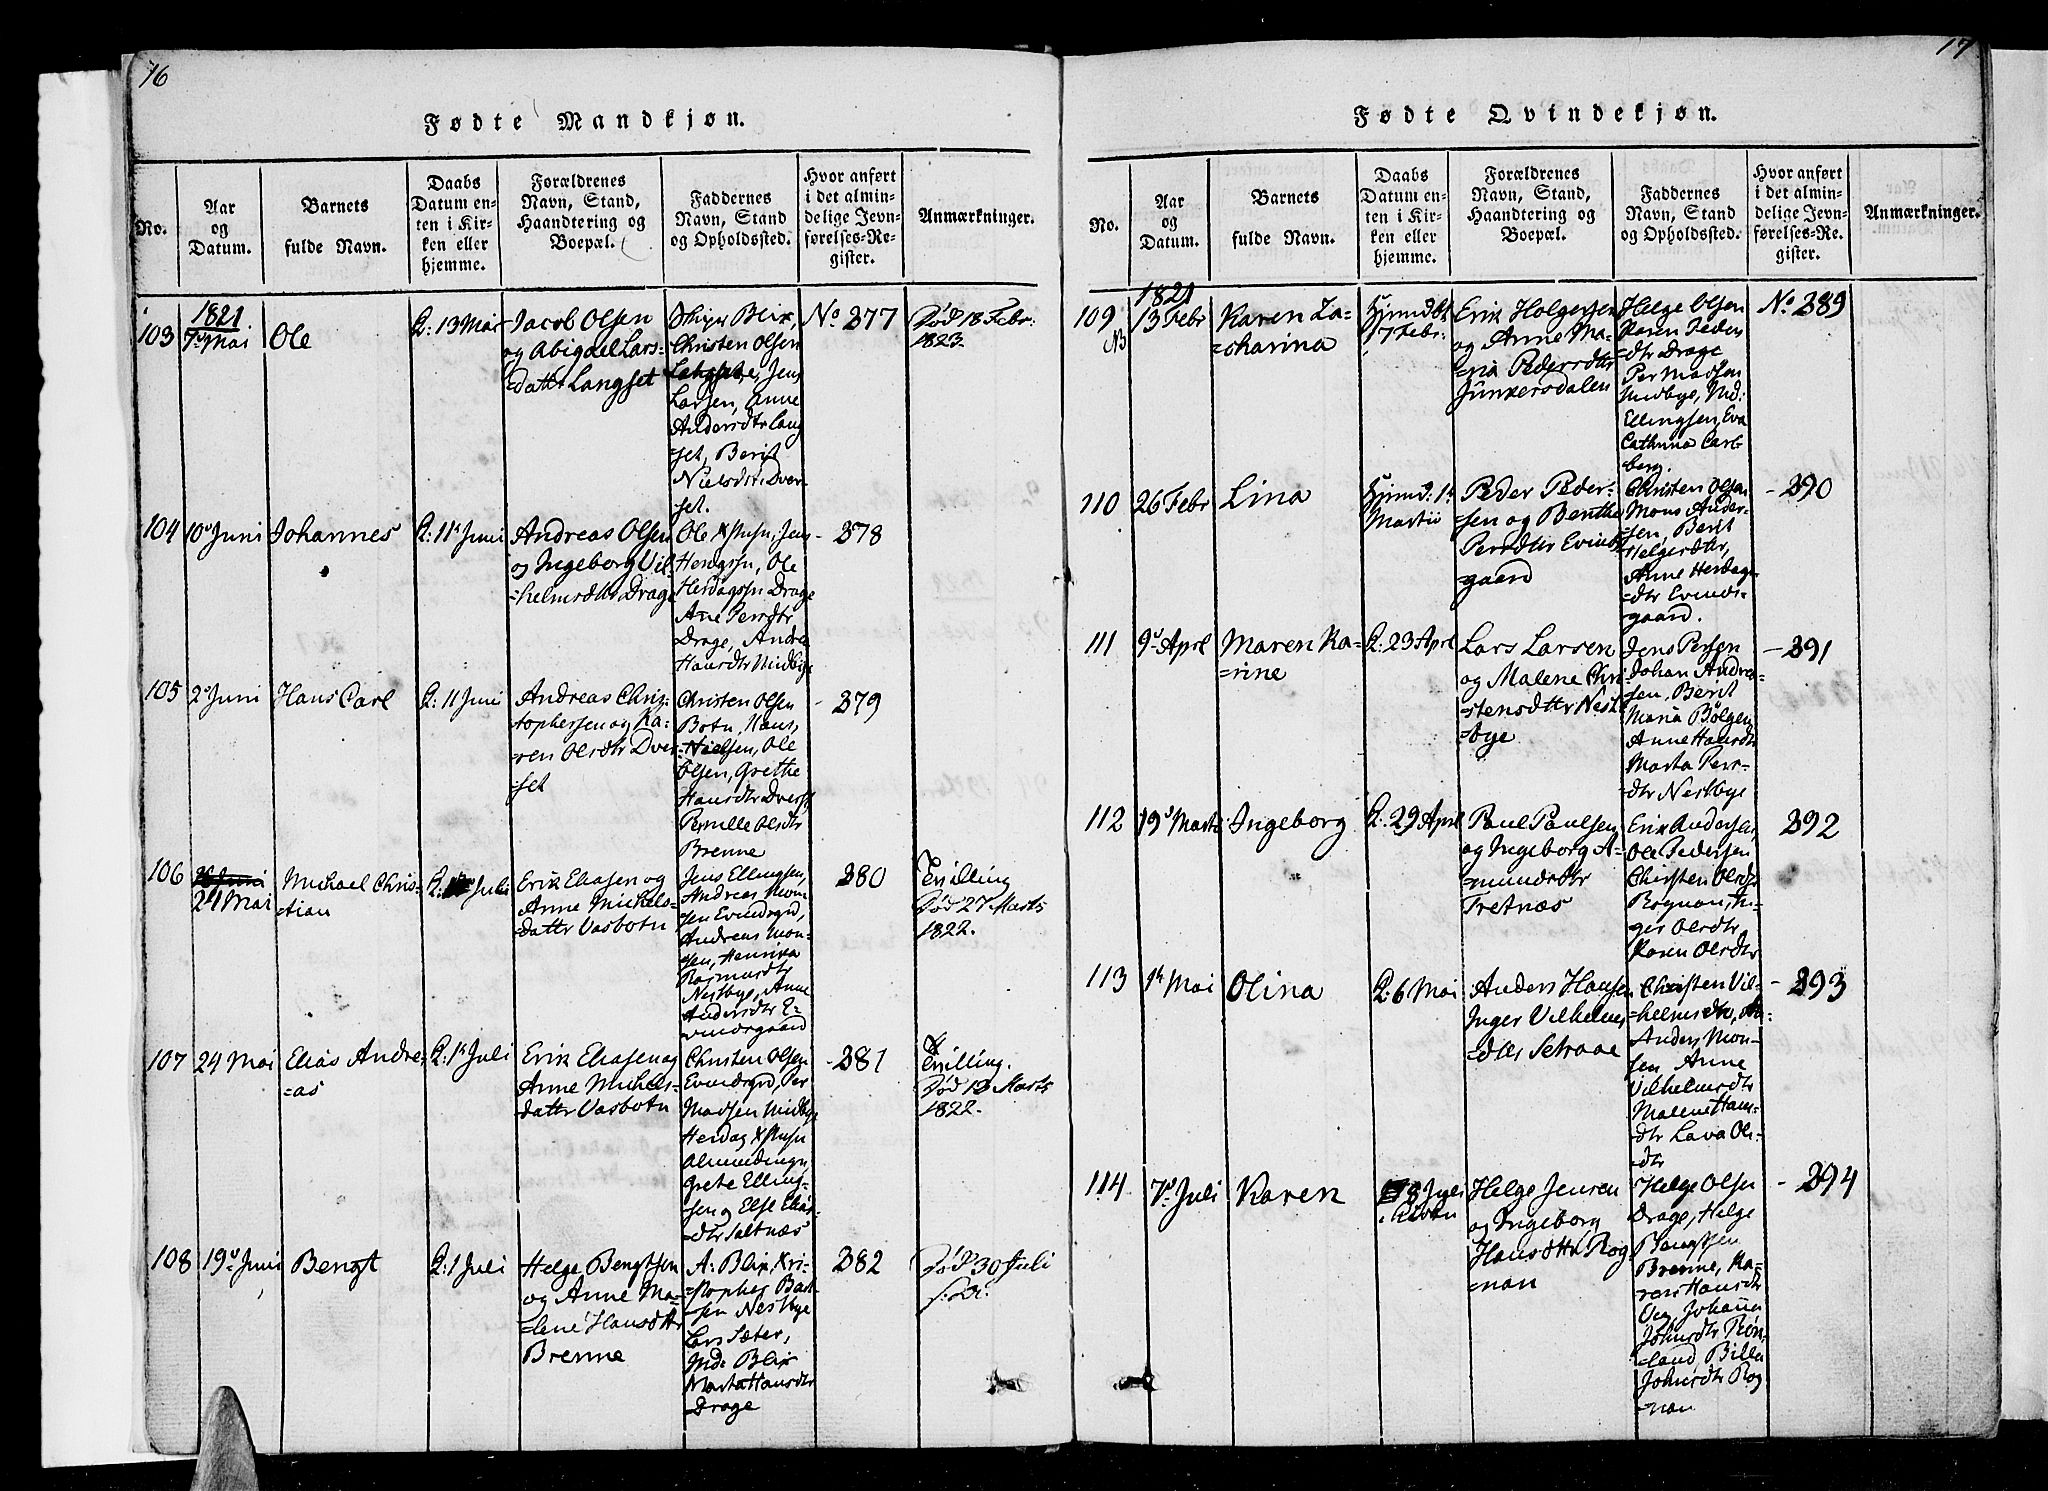 16
Fødte Mandkjøn.
No.
Aar
og
Datum.
Barnets
fulde Navn.
Daabs
Datum en-
ten i Kir-
ken eller
hjemme.
Forældrenes
Navn, Stand,
Haandtering og
Boepæl.
Faddernes
Navn, Stand
og Opholdssted.
Hvor anført
i det almin-
delige Jevn-
førelses-Re-
gister.
Anmærkninger.
103
1821
7de Mai
Ole
13 Mai
Jacob Olsen
og Abigael Lars-
datter Langset
Blix,
Christen Olsen
Jens
Larsen, Anne
Andersdtr Lang
set, Berit
Nielsdtr: Dver-
set.
No 277
Død 18 Febr:
1823.
104
10de Juni
Johannes
11te Juni
Andreas Olsen
og Ingeborg Vil-
helmsdtr Drage
Ole Jens
Ole
Herdagssn Drage
Ane Persdtr
Drage, Andrea
Hansdtr Midbye
- 278
105
2de Juni
Hans Carl
11 Juni
Andreas Chris-
tophersen og Ka-
ren Olsdtr Dver
-set
Christen Olsen
Botn, Hans
Nielsen, Ole
Olsen, Grethe
Hansdtr Dverset
Pernille Olsdtr
Brenne
- 279
106
24 Mai
Michael Chris-
tian
Juli
Erik Eliasen og
Anne Michels-
datter Vasbotn
Jens Ellingsen,
Andreas Mon-
sen Evindsgrd,
Andreas Mon-
sen, Henrika
Rasmusdtr
Nestbye, Anne
Andersdtr E-
vindsgaard
280
Tvilling
Død 27 Marts
1822.
107
24 Mai
Elias Andre-
as
1te Juli
Erik Eliasen og
Anne Michels-
datter Vasbotn
Christen Olsen
Evindsgrd, Per
Madsen Midbye
Herdag
Almendingn,
Grete Elling-
sen og Else Elias-
dtr Saltnæs
- 281
Tvilling.
Død 12 Marts
1822.
108
19de Juni
Bengt
1 Juli
Helge Bengtsen
og Anne Ma-
lene Hansdttr
Brenne
A: Blix, Kri-
stopher
Nestbye
Lars Sæter,
Blix
Marta Hansdtr
Drage
282
Død 30 Juli
17
Fødte Qvindekjøn.
No.
Aar
og
Datum.
Barnets
fulde Navn.
Daabs
Datum en-
ten i Kir-
ken eller
hjemme.
Forældrenes
Navn, Stand,
Haandtering og
Boepæl.
Faddernes
Navn, Stand
og Opholdssted.
Hvor anført
i det almin-
delige Jevn-
førelses-Re-
gister.
Anmærkninger.
109
1821
13 Febr
Karen Za-
charina
17 Febr:
Erik Holgersen
og Anne Ma-
ria Pedersdtr
Junkersdalen
Helge Olsen
Karen Peders
dtr Drage
Per Madsen
Midbye,
Ellingsen, Eva
Cathrina Carl
berg.
No 289
110
26 Febr
Lina
Martii
Peder Peder-
sen og Benthe
Persdtr Evinds
gaard
Christen Olsen
Mons Ander-
sen, Berit
Helgesdtr,
Anne Herdags-
dtr Evinds-
gaard.
- 290
111
9de April
Maren Ka-
rine
23 April
Lars Larsen
og Malene Chri
stensdtr Nest
bye
Jens Persen
Johan Andre-
sen, Berit
Maria
Anne Hansdtr
Marta Pers-
dtr Nestbye
- 291
112
19de Marts
Ingeborg
29 April
Paul Paulsen
og Ingeborg A-
mundsdtr
Tretnæs
Erik Andersen,
Ole Pedersen
Christen Olsen
Rognan, In-
ger Olsdtr
Karen Olsdtr
292
113
1te Mai
Olina
6 Mai
Anders Hansen
Inger Vilhelms
dtr Setraae
Christen Vil-
helms
Anders Mon-
sen Anne
Vilhelmsdtr
Malene Hans-
dtr Lava Ols-
dtr
- 293
114
7de Juli
Karen
8 Juli
Helge Jensen
og Ingeborg
Hansdttr Rog
nan
Helge Olsen
Drage, Helge
Bengtsen
Brenne, Ka-
ren Hansdtr
Johanna
Johnsdtr Røn-
land, Billa
Johnsdtr Rog
nan
- 294